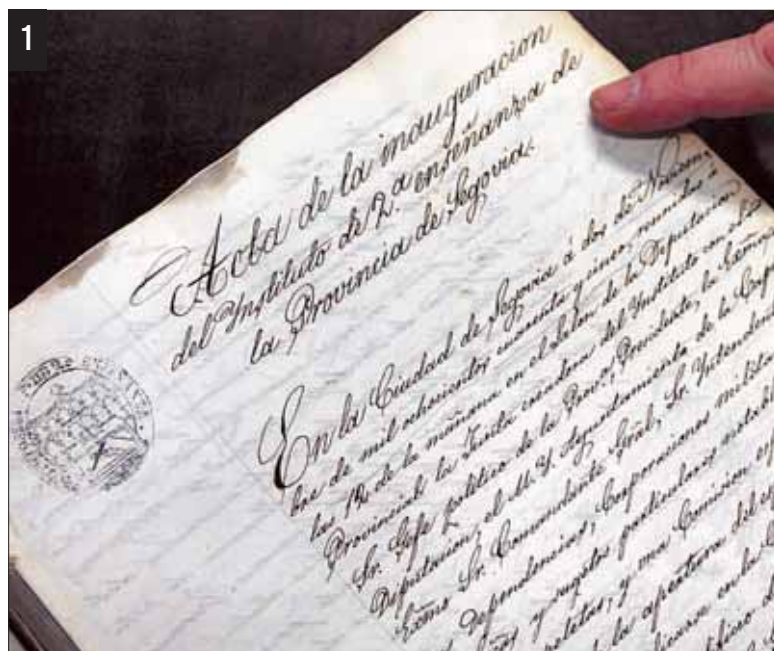 1
Acta de la inauguracion
del Instituto de 2.a enseñanza de
la Provincia de Segovia.
En la Ciudad de Segovia á dos de Noviem-
bre de mil ochocientos cuarenta y cinco, reunidos á
las 12 de la mañana en el Salon de la Diputacion
Provincial la Junta creadora del Instituto con el
Sr. Gefe politico de la Prov.a, Presidente, la
Diputacion, el M. Y. Ayuntamiento de la Cap
Exmo Sr. Comandante Gral, Sr. Intenden
dependencias, Corporaciones milita
y sugetos particulares notab
y una Comision
de la apertura del
en la